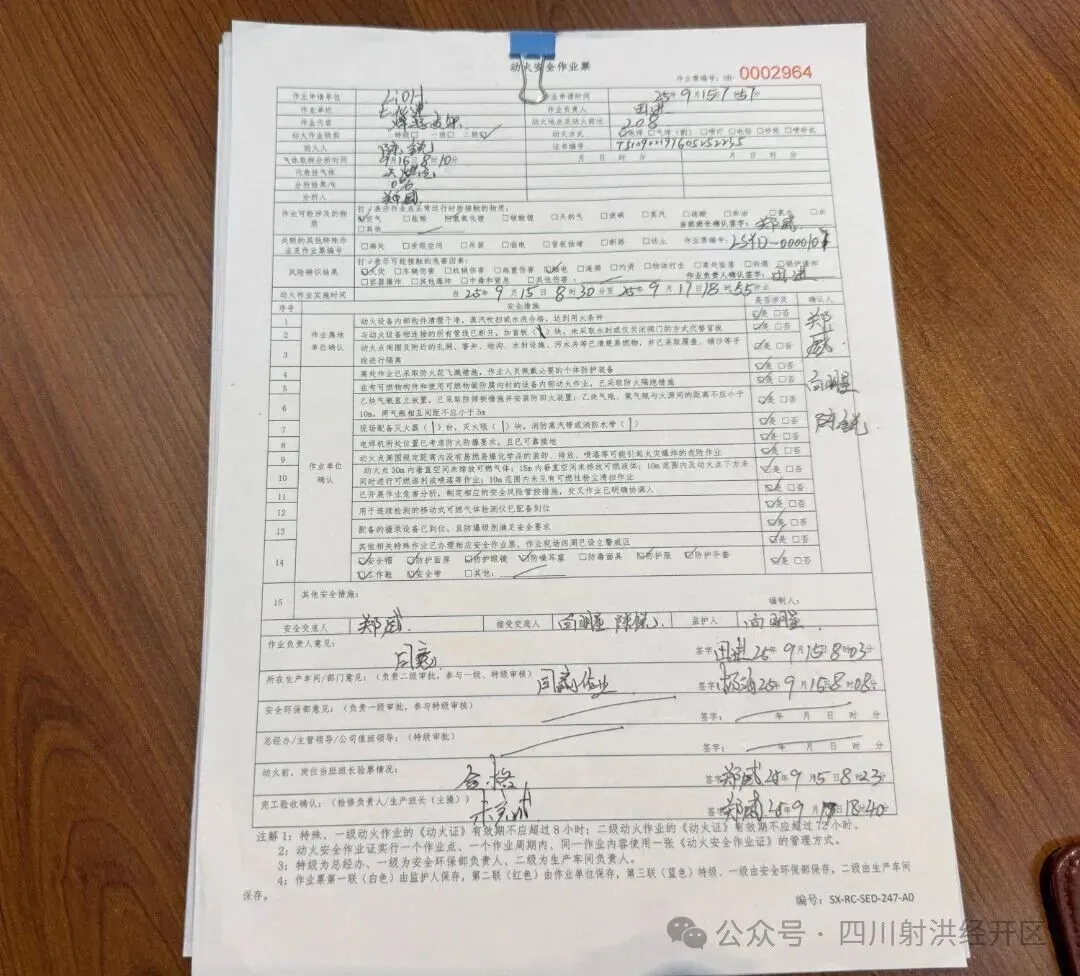 动火安全作业票
作业票编号：DH- 0002964
作业申请单位 LiOH 作业申请时间 25年9月15日7时51分
作业单位 作业负责人 田进
作业内容 焊接支架 动火地点及动火部位 208
动火作业级别 特级□ 一级□ 二级☑ 动火方式 ☑电焊 □气焊（割） □喷灯 □电钻 □砂轮 □喷砂机
动火人 陈锐 证书编号
气体取样分析时间 9月15日8时10分 月 日 时 分 月 日 时 分
代表性气体 天燃气
分析结果/%
分析人 郑威
作业可能涉及的物质 打√表示作业点正常运行时所接触的物质：
☑空气 □盐酸 ☑氢氧化锂 □碳酸锂 □天然气 □液碱 □蒸汽 □硫酸 □柴油 □氨水 □水
□其他 当班班长确认签字：郑威
关联的其他特殊作业及作业票编号 □高处 □受限空间 □吊装 □临电 □盲板抽堵 □断路 □动土 作业票编号：
风险辨识结果 打√表示可能接触的危害因素：
☑火灾 □车辆伤害 □机械伤害 □起重伤害 ☑触电 □淹溺 □灼烫 □物体打击 □高处坠落 □坍塌 □锅炉爆炸
□容器爆炸 □其他爆炸 □中毒和窒息 □其他伤害： 作业负责人确认签字：田进
动火作业实施时间 自25年9月15日8时30分至25年9月17日18时55分止
序号 安全措施 是否涉及 确认人
作业属地单位确认
1 动火设备内部构件清理干净，蒸汽吹扫或水洗合格，达到用火条件 ☑是 □否 郑威
2 与动火设备相连接的所有管线已断开，加盲板（\）块，未采取水封或仅关闭阀门的方式代替盲板 ☑是 □否
3 动火点周围及附近的孔洞、窨井、地沟、水封设施、污水井等已清楚易燃物，并已采取覆盖、铺沙等手段进行隔离 ☑是 □否
作业单位确认
4 高处作业已采取防火花飞溅措施，作业人员佩戴必要的个体防护装备 ☑是 □否
5 在有可燃物构件和使用可燃物做防腐内衬的设备内部动火作业，已采取防火隔绝措施 ☑是 □否 向明星
6 乙炔气瓶直立放置，已采取防倾倒措施并安装防回火装置；乙炔气瓶、氧气瓶与火源间的距离不应小于10m，两气瓶相互间距不应小于5m ☑是 □否
7 现场配备灭火器（1）台，灭火毯（1）块，消防蒸汽带或消防水带（1） ☑是 □否 陈锐
8 电焊机所处位置已考虑防火防爆要求，且已可靠接地 ☑是 □否
9 动火点周围规定距离内没有易燃易爆化学品的装卸、排放、喷漆等可能引起火灾爆炸的危险作业 ☑是 □否
10 动火点30m内垂直空间未排放可燃气体；15m内垂直空间未排放可燃液体；10m范围内及动火点下方未同时进行可燃溶剂或喷漆等作业；10m范围内未见有可燃性粉尘清扫作业 ☑是 □否
11 已开展作业危害分析，制定相应的安全风险管控措施，交叉作业已明确协调人 ☑是 □否
12 用于连续检测的移动式可燃气体检测仪已配备到位 ☑是 □否
13 配备的摄录设备已到位，且防爆级别满足安全要求 ☑是 □否
14 其他相关特殊作业已办理相应安全作业票，作业现场四周已设立警戒区 ☑是 □否
☑安全帽 ☑防护面屏 ☑防护眼镜 ☑防噪耳塞 □防毒面具 ☑防护服 ☑防护手套
☑工作鞋 ☑安全带 □其他： ☑是 □否
15 其他安全措施： 编制人：
安全交底人 郑威 接受交底人 向明星 陈锐 监护人 向明星
作业负责人意见： 同意 签字：田进 25年9月15日8时03分
所在生产车间/部门意见：（负责二级审批，参与一级、特级审核） 同意作业 签字： 25年9月15日8时08分
安全环保部意见：（负责一级审批，参与特级审核） 签字： 年 月 日 时 分
总经办/主管领导/公司值班领导：（特级审批） 签字： 年 月 日 时 分
动火前，岗位当班班长验票情况： 合格 签字：郑威 25年9月15日8时23分
完工验收确认：（检修负责人/生产班长（主操）） 未完成 签字：郑威 25年9月17日18时40分
注解1：特殊、一级动火作业的《动火证》有效期不应超过8小时；二级动火作业的《动火证》有效期不应超过72小时。
2：动火安全作业证实行一个作业点、一个作业周期内、同一作业内容使用一张《动火安全作业证》的管理方式。
3：特级为总经办、一级为安全环保部负责人、二级为生产车间负责人。
4：作业票第一联（白色）由监护人保存，第二联（红色）由作业单位保存，第三联（蓝色）特级、一级由安全环保部保存，二级由生产车间
保存。
编号：SX-RC-SED-247-A0
公众号·四川射洪经开区